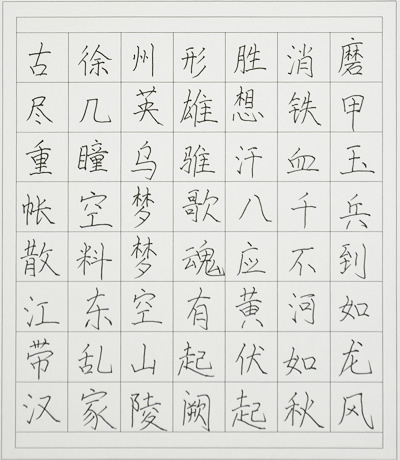 古徐州形胜消磨
尽几英雄想铁甲
重瞳乌骓汗血玉
帐空梦歌八千兵
散料梦魂应不到
江东空有黄河如
带乱山起伏如龙
汉家陵阙起秋风